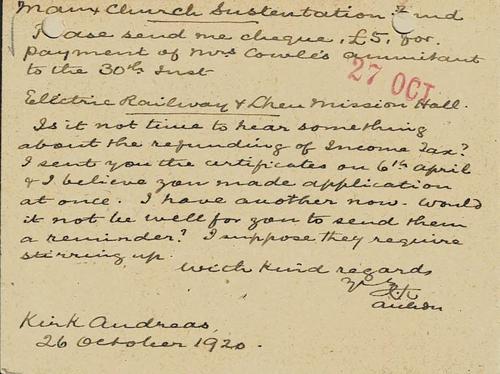 Manx Church Sustentation Fund
Please send me cheque, £5, for
payment of Mrs Cowle's annuitant
to the 30th Inst
27 OCT
Electric Railway & Lhen Mission Hall.
Is it not time to hear something
about the refunding of Income Tax?
I sent you the certificates on 6th April
& I believe you made application
at once. I have another now. Would
it not be well for you to send them
a reminder? I suppose they require
stirring up.
With kind regards
Kirk Andreas,
26 October 1920.